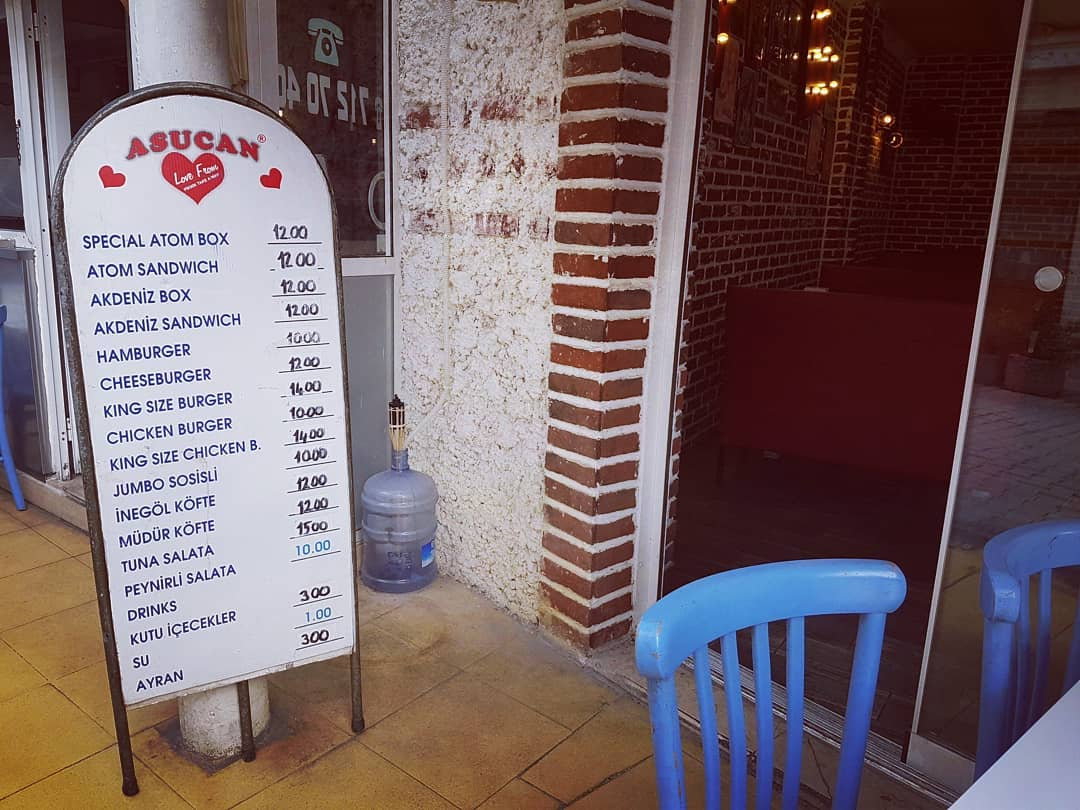 ASUCAN®
Love From
SPECIAL ATOM BOX 12.00
ATOM SANDWICH 12.00
AKDENİZ BOX 12.00
AKDENİZ SANDWICH 12.00
HAMBURGER 10.00
CHEESEBURGER 12.00
KING SIZE BURGER 14.00
CHICKEN BURGER 10.00
KING SIZE CHICKEN B. 14.00
JUMBO SOSİSLİ 10.00
İNEGÖL KÖFTE 12.00
MÜDÜR KÖFTE 12.00
TUNA SALATA 15.00
PEYNİRLİ SALATA 10.00
DRINKS
KUTU İÇECEKLER 3.00
SU 1.00
AYRAN 3.00
712 70 40